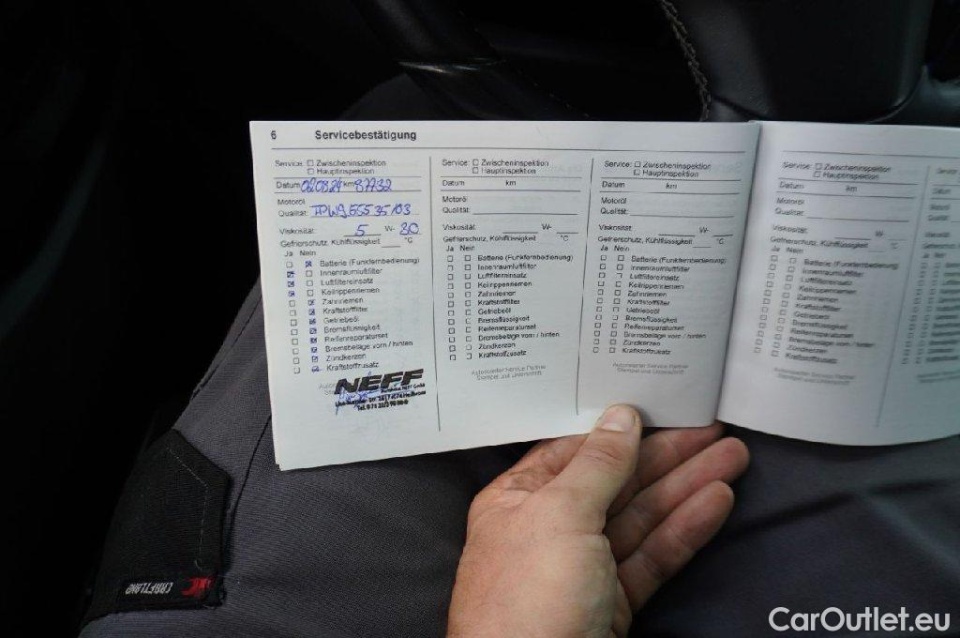 6 Servicebestätigung
Service: ☐ Zwischeninspektion
☐ Hauptinspektion
Datum 020824 km 87732
Motoröl
Qualität:
Viskosität: 5 W- 30
Gefrierschutz, Kühlflüssigkeit °C
Ja Nein
Batterie (Funkfernbedienung)
Innenraumluftfilter
Luftfiltereinsatz
Keilrippenriemen
Zahnriemen
Kraftstofffilter
Getriebeöl
Bremsflüssigkeit
Reifenreparaturset
Bremsbeläge vorn / hinten
Zündkerzen
Kraftstoffzusatz
NEFF
Service: ☐ Zwischeninspektion
☐ Hauptinspektion
Datum km
Motoröl
Qualität:
Viskosität: W-
Gefrierschutz, Kühlflüssigkeit °C
Ja Nein
Batterie (Funkfernbedienung)
Innenraumluftfilter
Luftfiltereinsatz
Keilrippenriemen
Zahnriemen
Kraftstofffilter
Getriebeöl
Bremsflüssigkeit
Reifenreparaturset
Bremsbeläge vorn / hinten
Zündkerzen
Kraftstoffzusatz
Autorisierter Service Partner
Stempel und Unterschrift
Service: ☐ Zwischeninspektion
☐ Hauptinspektion
Datum km
Motoröl
Qualität:
Viskosität: W-
Gefrierschutz, Kühlflüssigkeit °C
Ja Nein
Batterie (Funkfernbedienung)
Innenraumluftfilter
Luftfiltereinsatz
Keilrippenriemen
Zahnriemen
Kraftstofffilter
Getriebeöl
Bremsflüssigkeit
Reifenreparaturset
Bremsbeläge vorn / hinten
Zündkerzen
Kraftstoffzusatz
Autorisierter Service Partner
Stempel und Unterschrift
Service: ☐ Zwischeninspektion
☐ Hauptinspektion
Datum km
Motoröl
Qualität:
Viskosität: W-
Gefrierschutz, Kühlflüssigkeit °C
Ja Nein
Batterie (Funkfernbedienung)
Innenraumluftfilter
Luftfiltereinsatz
Keilrippenriemen
Zahnriemen
Kraftstofffilter
Getriebeöl
Bremsflüssigkeit
Reifenreparaturset
Bremsbeläge vorn / hinten
Zündkerzen
Kraftstoffzusatz
Autorisierter Service Partner
Stempel und Unterschrift
CRAFTLAND
CarOutlet.eu